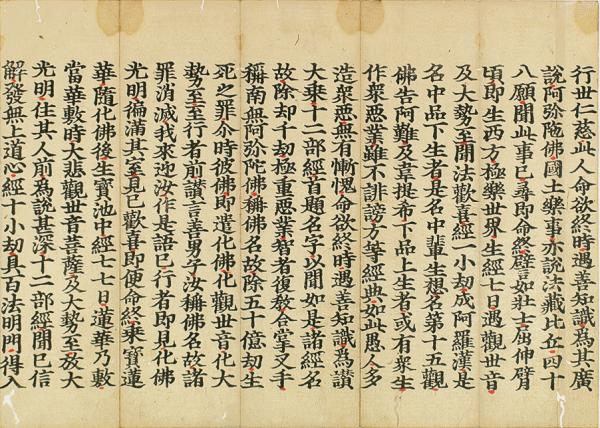 行世仁慈此人命欲終時遇善知識為其廣
說阿弥陁佛國土樂事亦說法藏比丘四十
八願聞此事已尋即命終譬如壯士屈伸臂
頃即生西方極樂世界生經七日遇觀世音
及大勢至聞法歡喜經一小劫成阿羅漢是
名中品下生者是名中輩生想名第十五觀
佛告阿難及韋提希下品上生者或有衆生
作衆惡業雖不誹謗方等經典如此愚人多
造衆惡無有慚愧命欲終時遇善知識為讃
大乘十二部經首題名字以聞如是諸經名
故除却千劫極重惡業智者復教合掌叉手
稱南無阿弥陀佛稱佛名故除五十億劫生
死之罪尒時彼佛即遣化佛化觀世音化大
勢至至行者前讃言善男子汝稱佛名故諸
罪消滅我來迎汝作是語已行者即見化佛
光明徧滿其室見已歡喜即便命終乘寶蓮
華隨化佛後生寶池中經七七日蓮華乃敷
當華敷時大悲觀世音菩薩及大勢至放大
光明住其人前為說甚深十二部經聞已信
解發無上道心經十小劫具百法明門得入